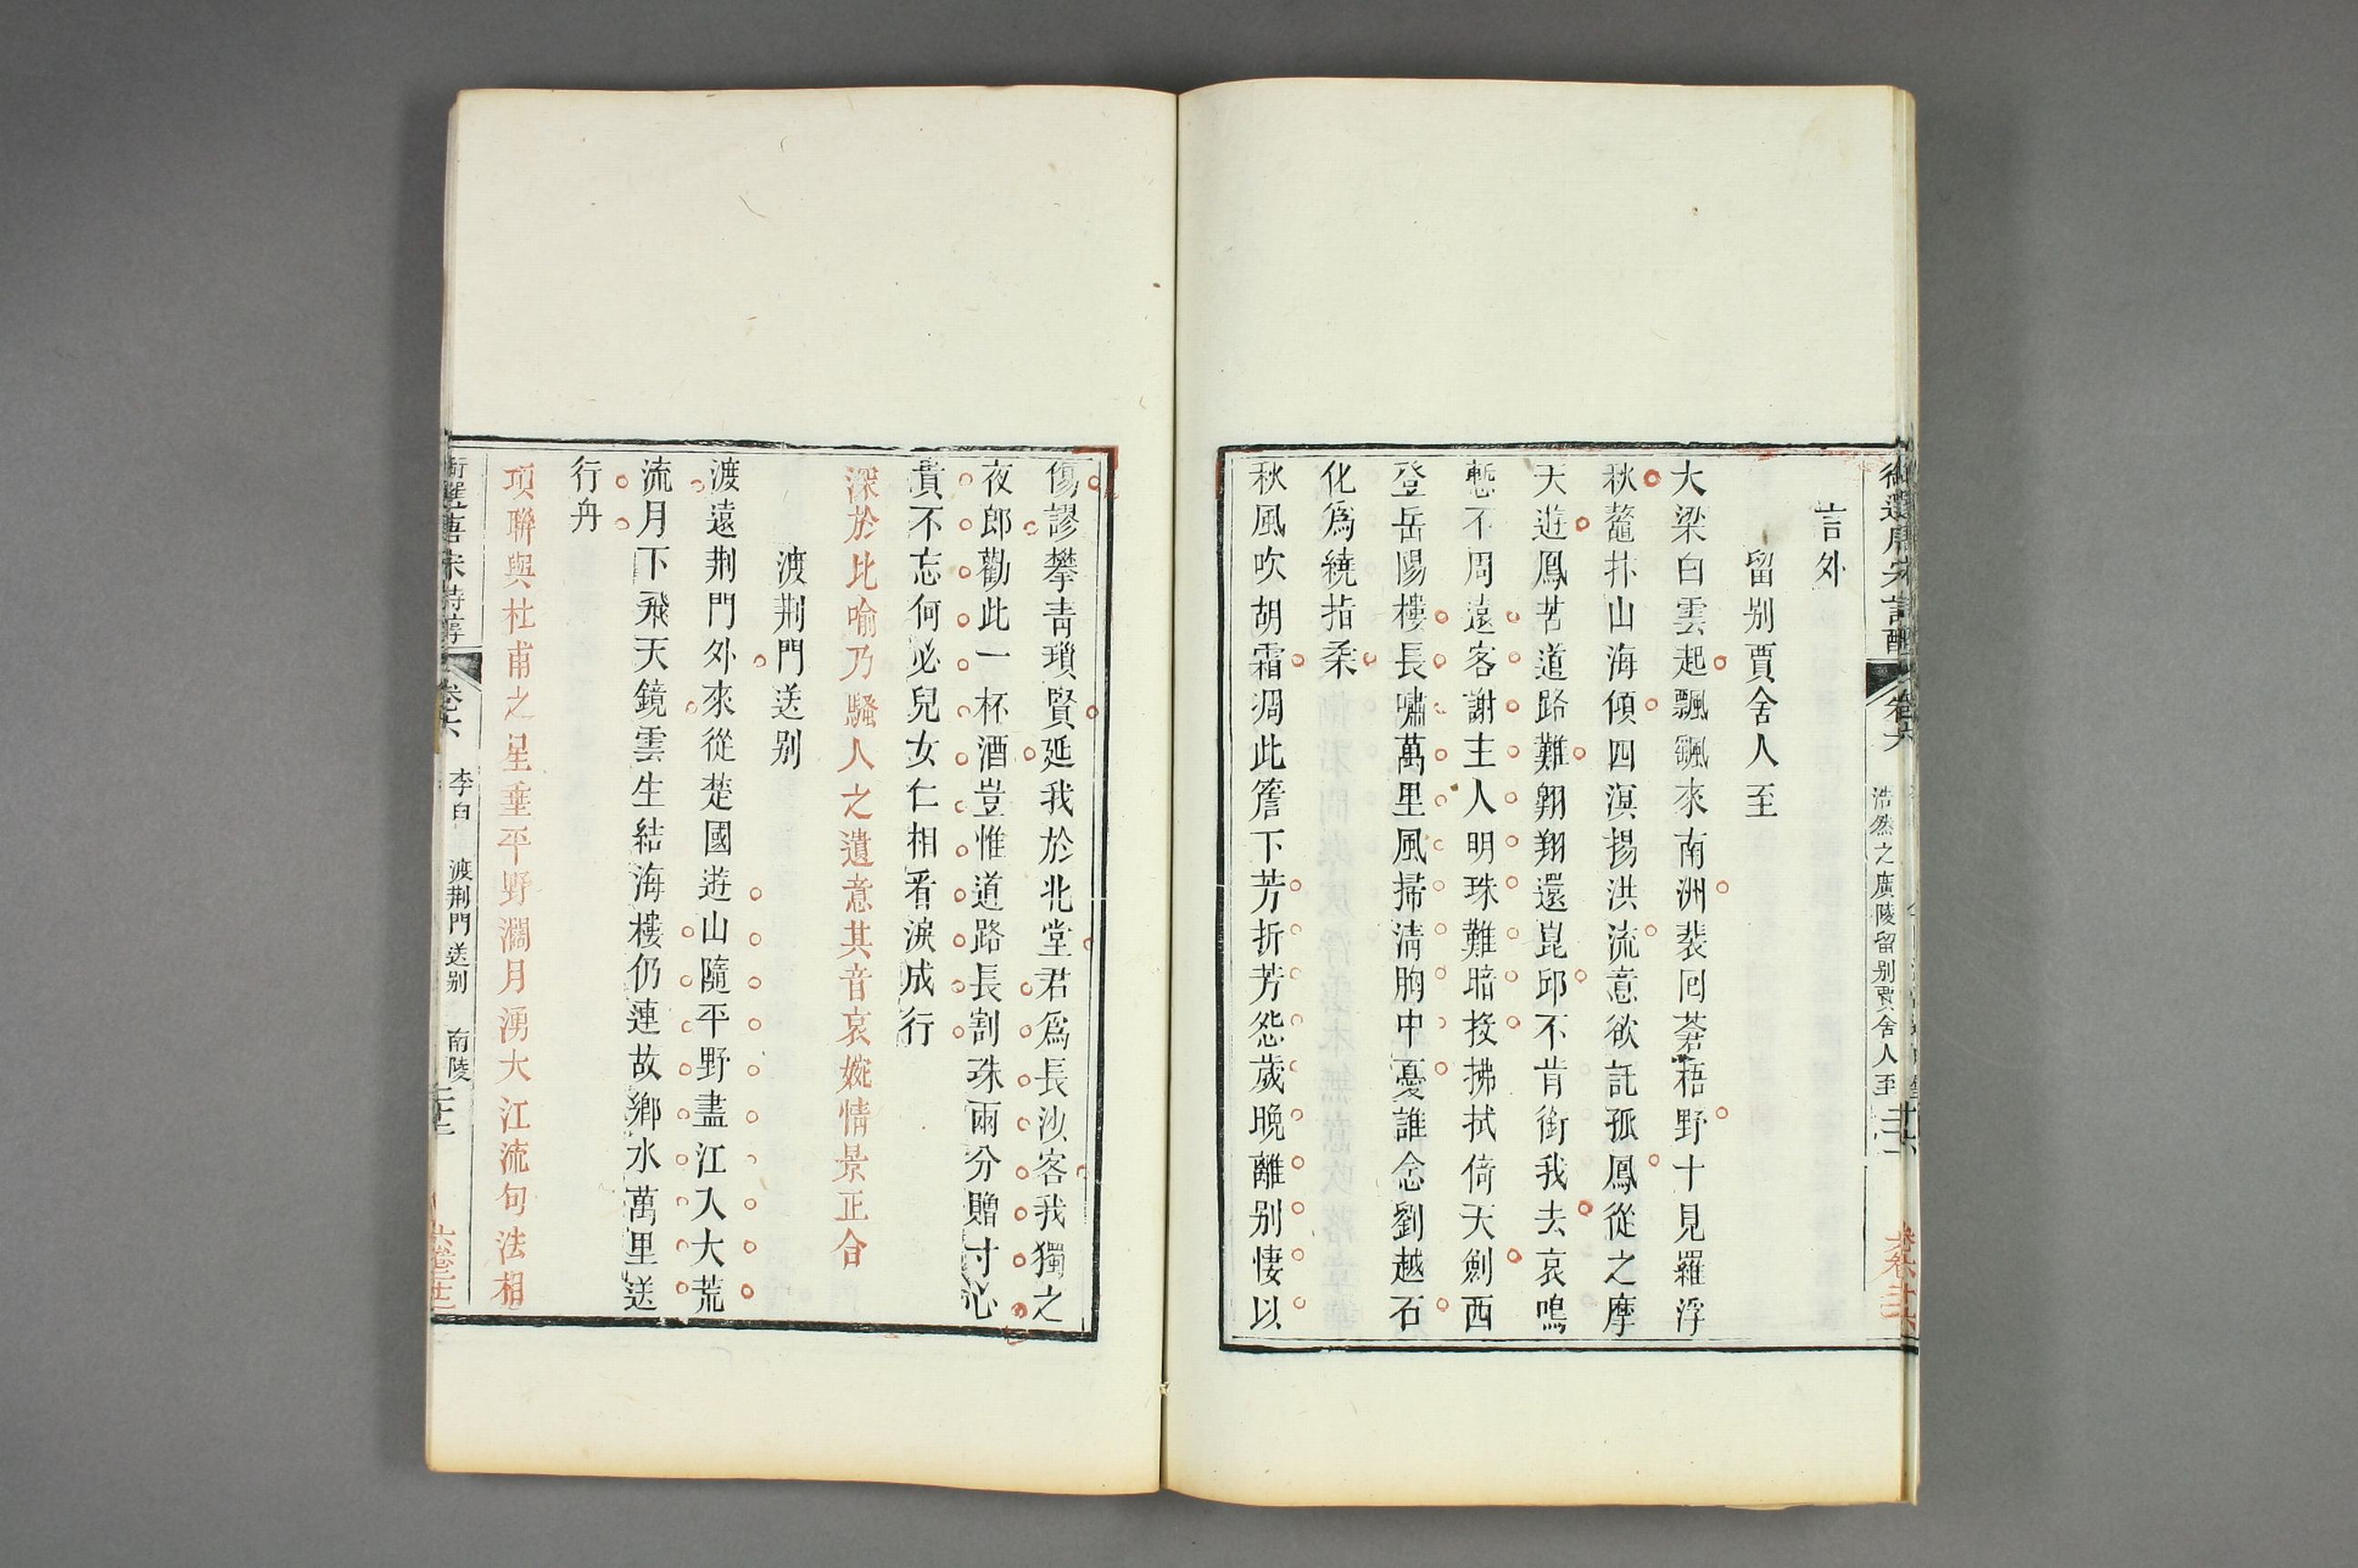 御選唐宋詩醇 卷六 浩然之廣陵 留别賈舍人至
言外
留别賈舍人至
大梁白雲起飄颻來南洲裴囘蒼梧野十見羅浮
秋鼇抃山海傾四溟揚洪流意欲託孤鳳從之摩
天遊鳳苦道路難翱翔還崑邱不肯銜我去哀鳴
慙不周遠客謝主人明珠難暗投拂拭倚天劍西
登岳陽樓長嘯萬里風掃淸胸中憂誰念劉越石
化爲繞指柔
秋風吹胡霜凋此簷下芳折芳怨歲晚離别悽以
傷謬攀靑瑣賢延我於北堂君爲長沙客我獨之
夜郎勸此一杯酒豈惟道路長割珠兩分贈寸心
貴不忘何必兒女仁相看淚成行
深於比喻乃騷人之遺意其音哀婉情景正合
渡荆門送别
渡遠荆門外來從楚國遊山隨平野盡江入大荒
流月下飛天鏡雲生結海樓仍連故鄉水萬里送
行舟
項聯與杜甫之星垂平野濶月湧大江流句法相
御選唐宋詩醇 卷六 李白 渡荆門送别 南陵